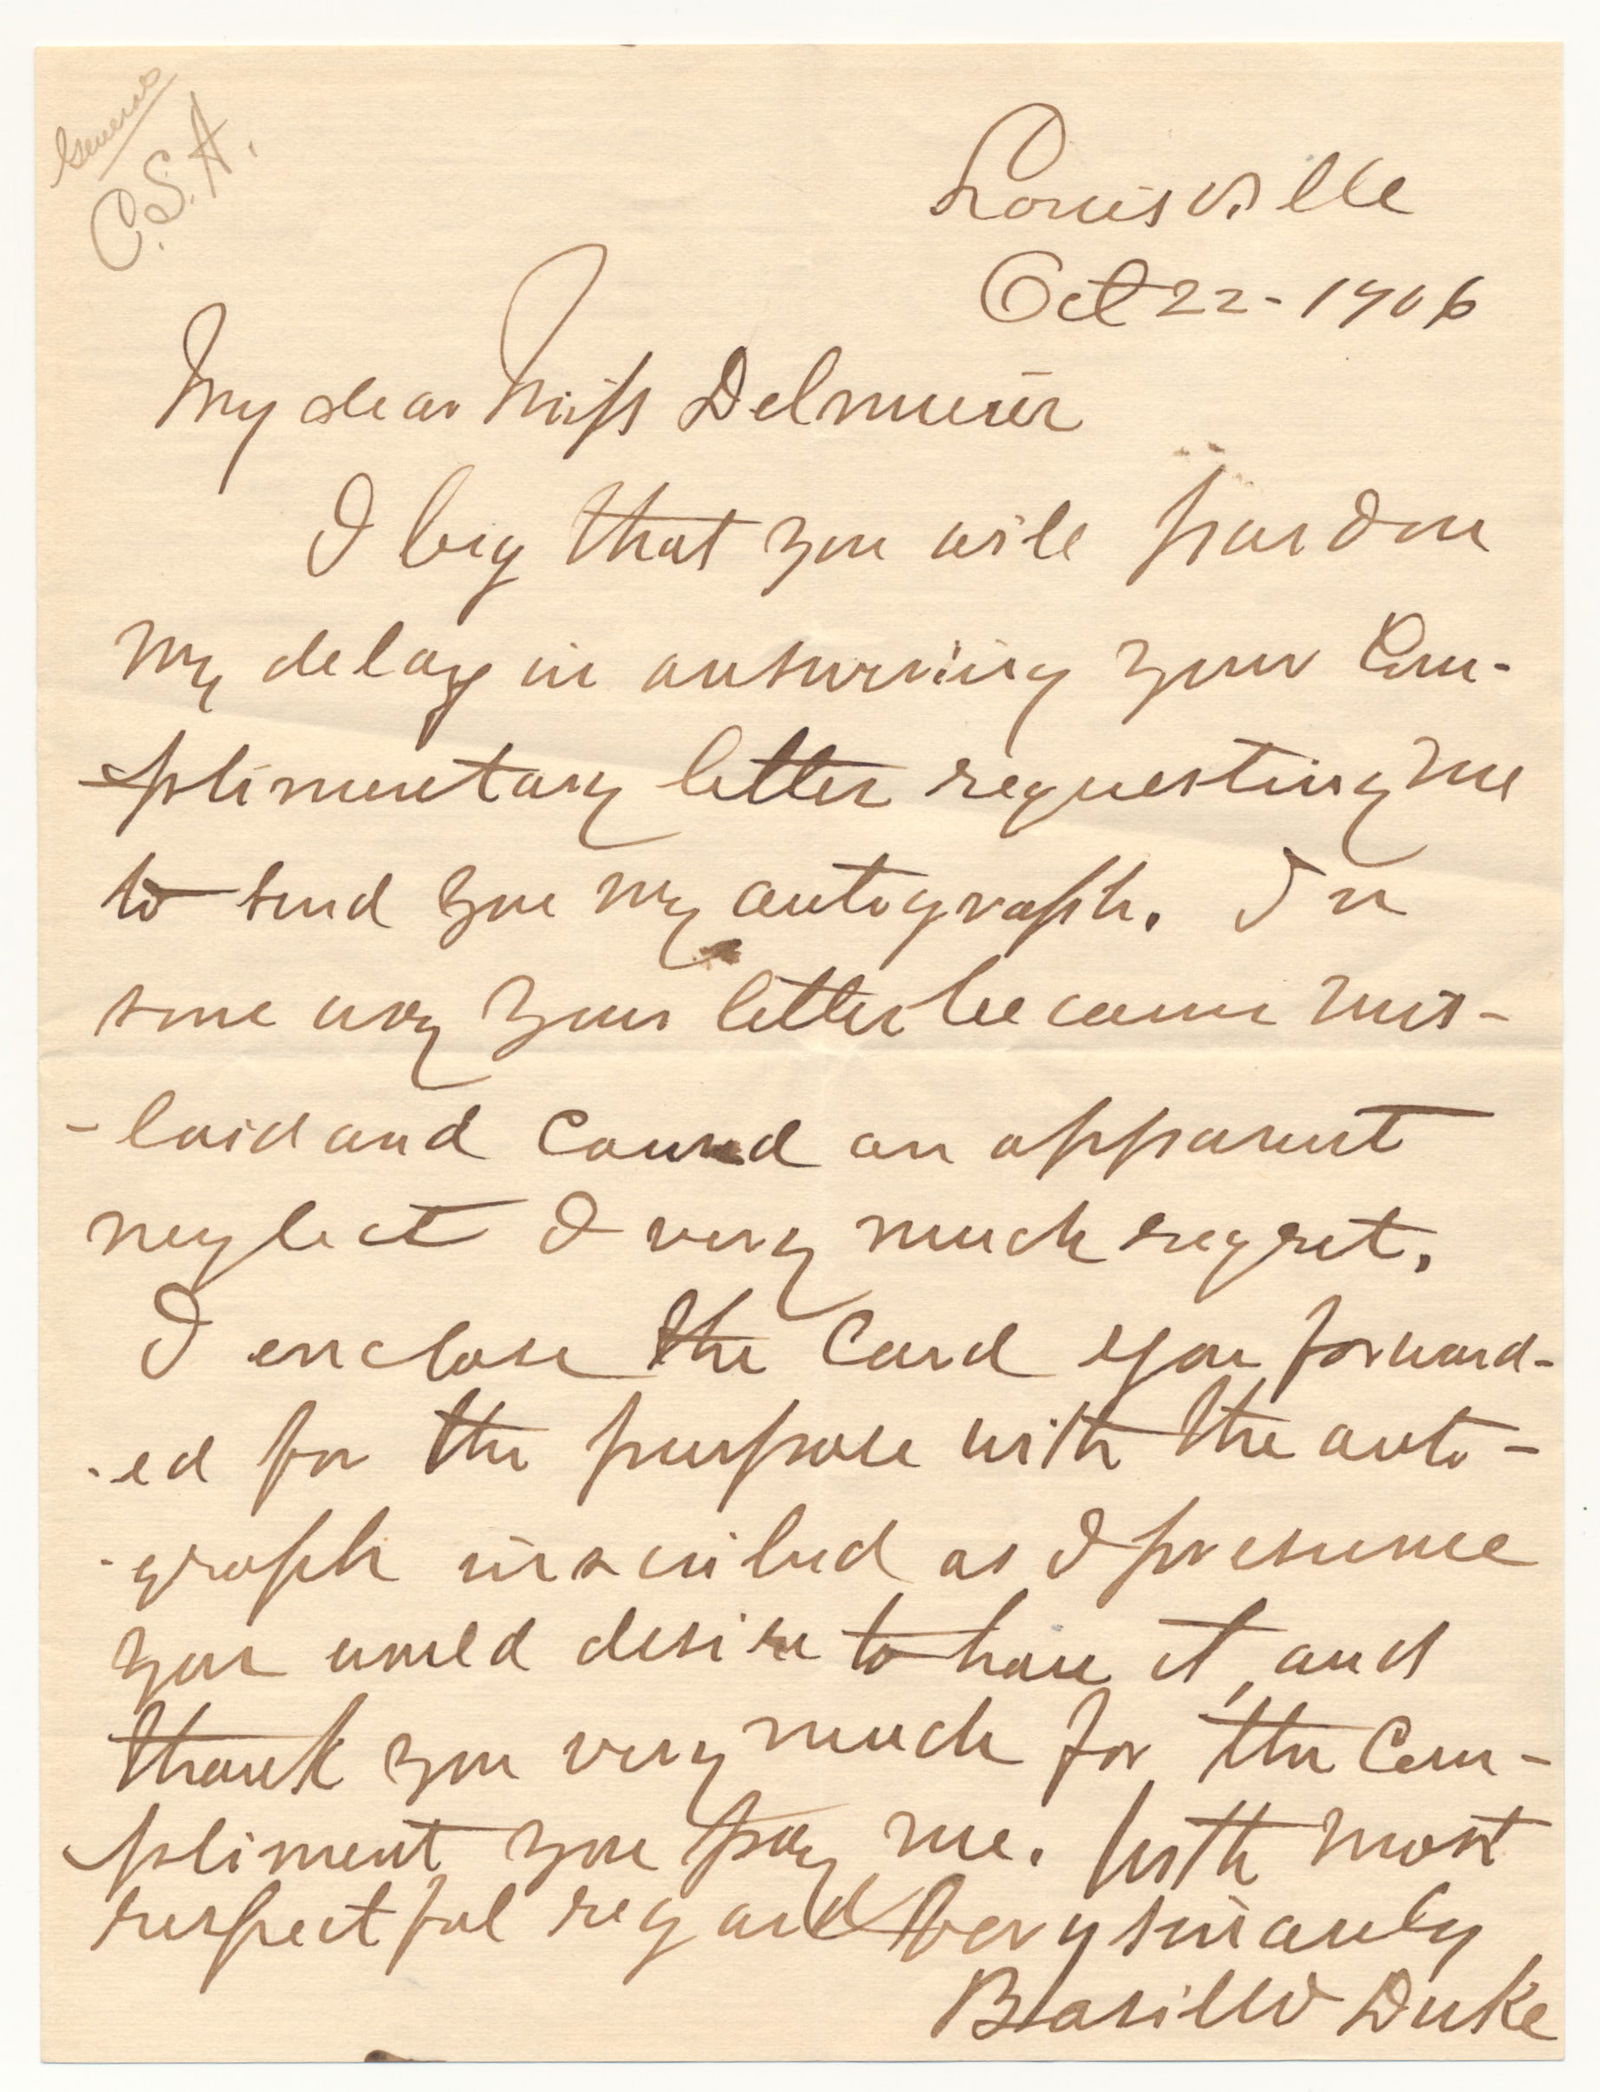 General
C.S.A.
Louisville
Oct 22 - 1906
My dear Miss
I beg that you will pardon
my delay in answering your com-
plimentary letter requesting me
to send you my autograph. In
some way your letter became mis-
-laid and caused an apparent
neglect I very much regret.
I enclose the card you forward-
-ed for the purpose with the auto-
-graph inscribed as I presume
you would desire to have it, and
thank you very much for the com-
pliment you pay me. With most
respectful regard Very sincerely
Basil W Duke